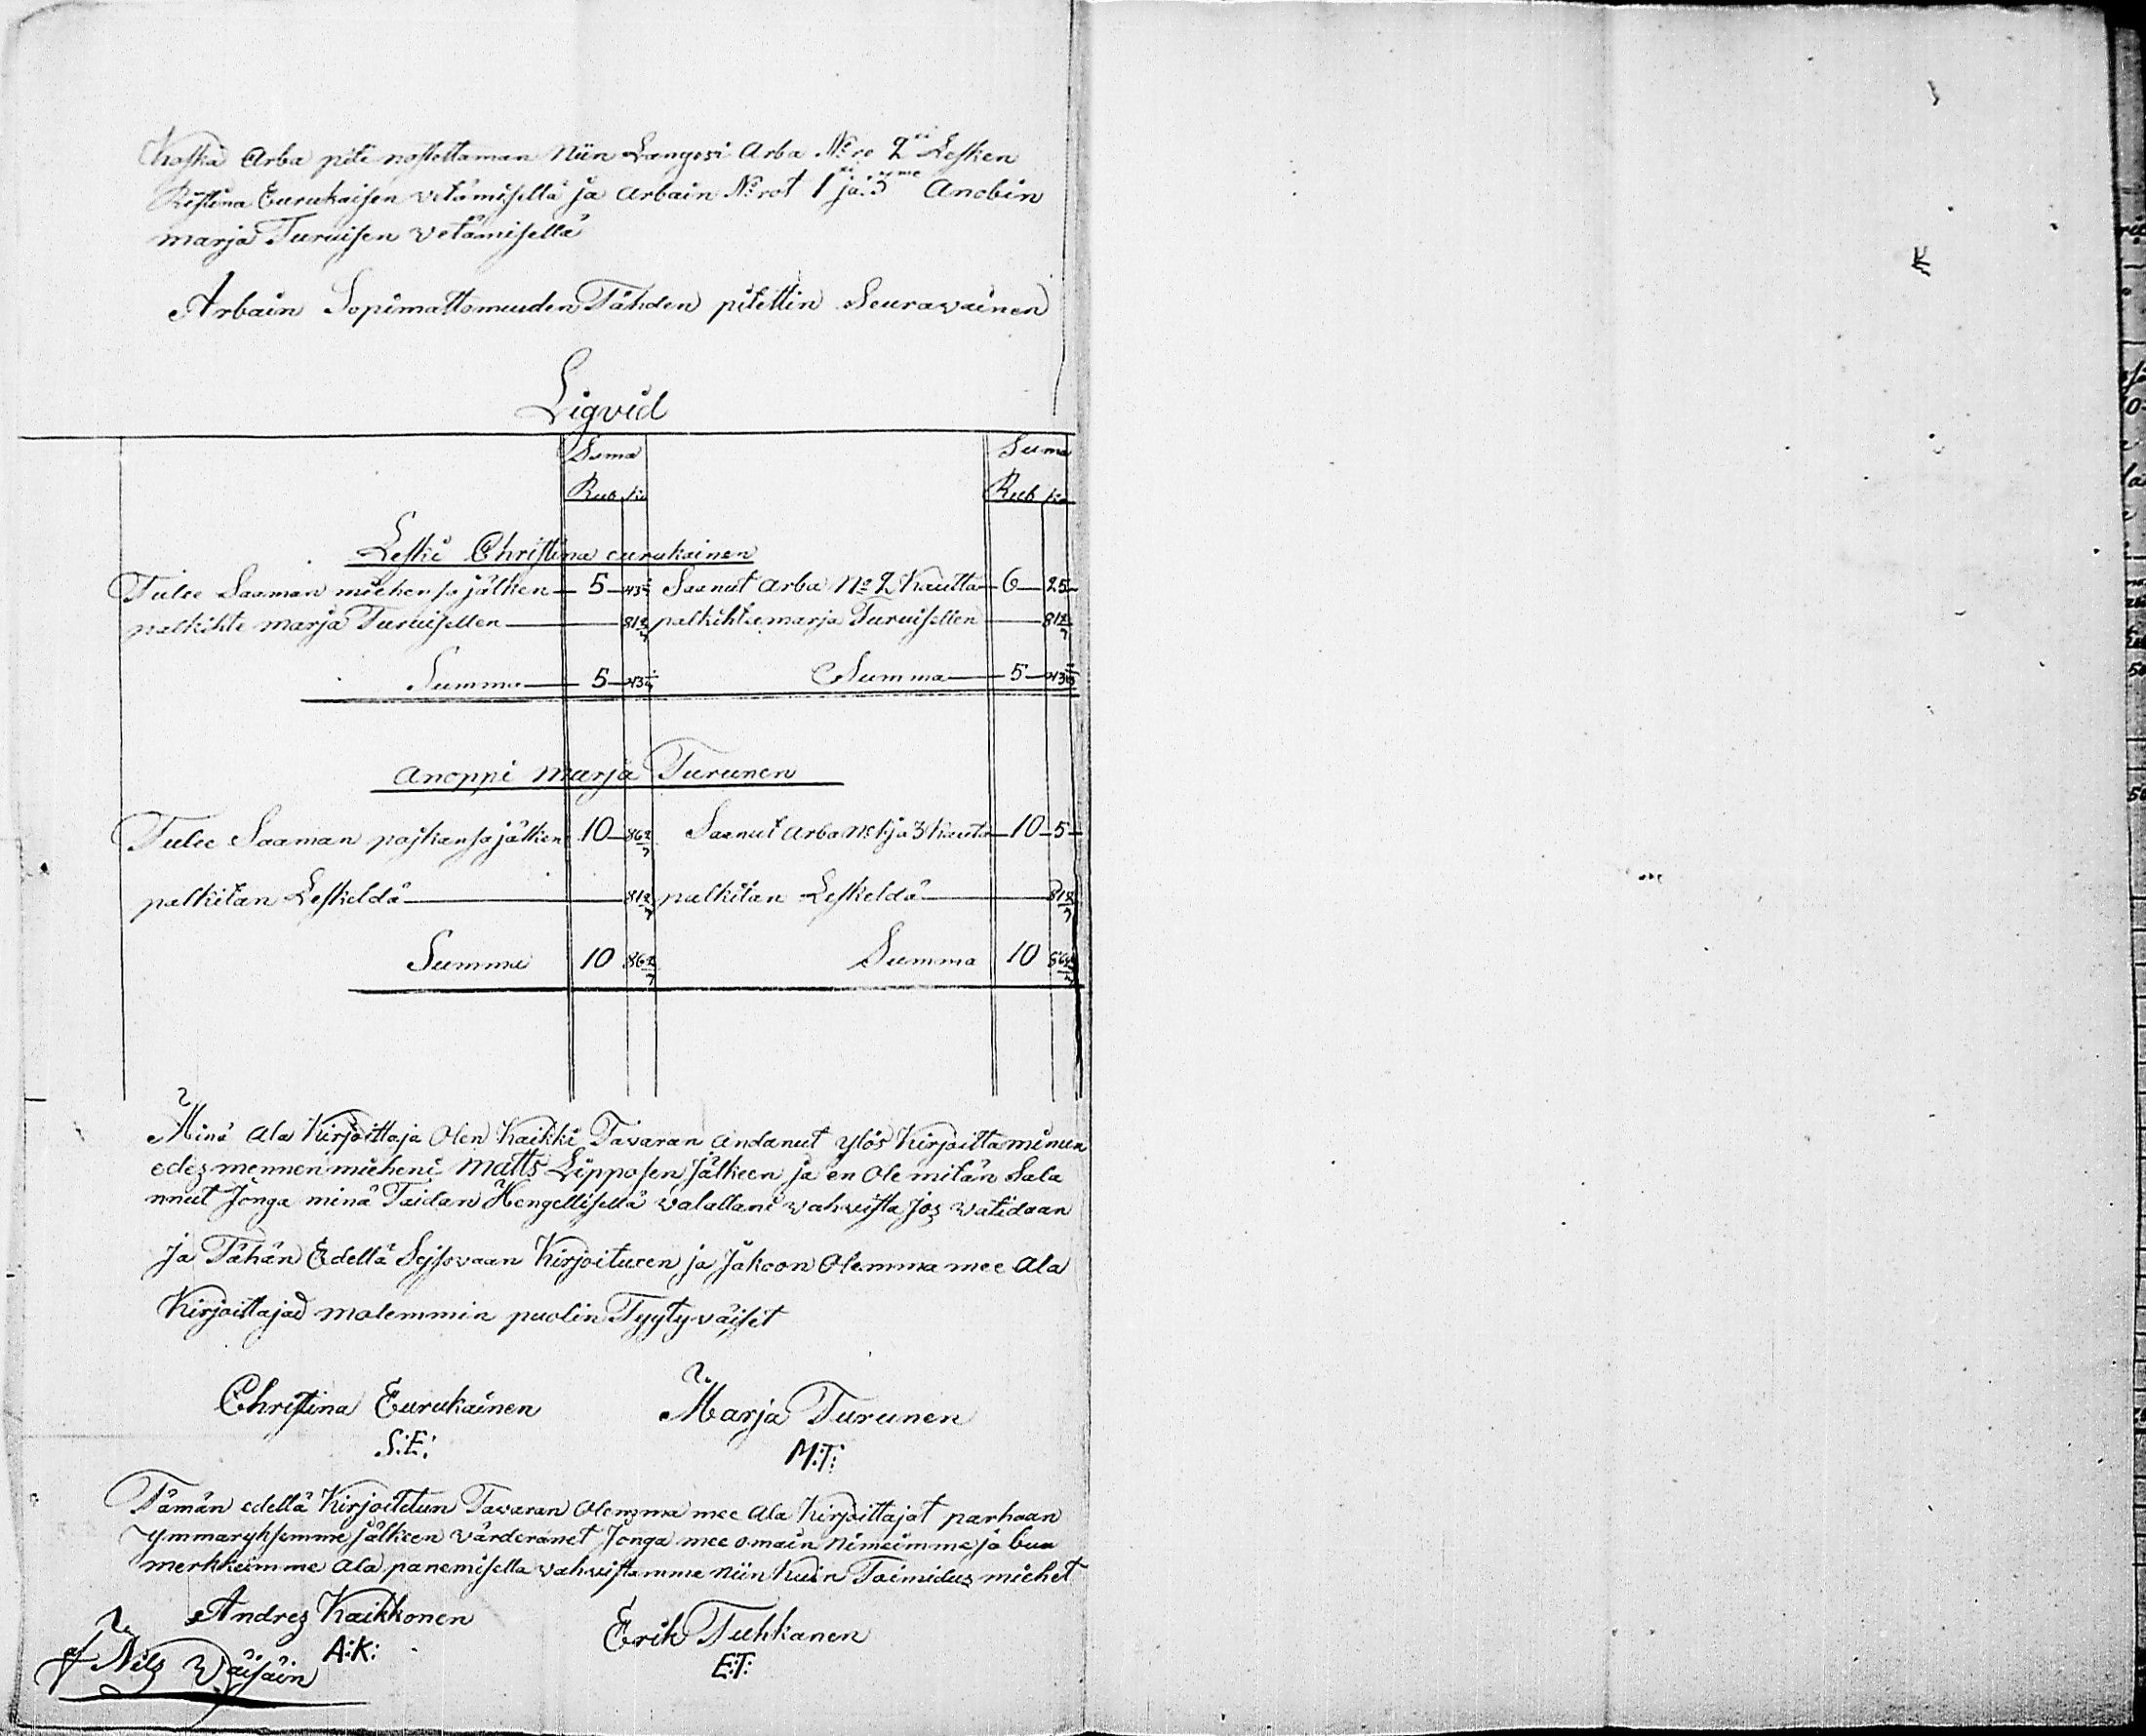 Koska Arba piti nostettaman Niin Langesi Arba N:ro 2xi Lesken
Ristina Eurukaisen vetämisellä ja arbain N:rot 1xi ja 3me Anobin
marja Turuisen vetämisellä
Arbain Sopimattomuuden Tähden pitettin Seuravainen
Ligvid
Suma Suma
Rub Ko Rub Ko
Leski Christina eurukainen
Tulee Saaman miehensä jälken 5 43 5/7 Saanut Arba No 2 Kautta 6 25
palkihte marja Turuisellen 81 2/7 palkihte marja Turuisellen 81 2/7
Summa 5 43 5/7 Summa 5 43 5/7
Anoppi Marja Turunen
Tulee Saaman pojkansa jälken 10 86 2/7 Saanut Arba No 1 ja 3 Kauta 10 5
palkitan Leskeldä 81 2/7 palkitan Leskeldä 81 2/7
Summa 10 86 2/7 Summa 10 86 2/7
Minä ala Kirjoittaja Olen Kaikki Tavaran andanut ylös Kirjoittaminen
edes mennen mieheni Matts Lipposen Jälkeen ja en Ole mitän Sala
nnut Jonga minä Taidan Hengellisellä valallani vahvista Jos vatidaan
Ja Tähän Edellä Sejsovaan Kirjoituxen ja Jakoon Olemma mee Ala
Kirjoittajad molemmin puolin Tyytyväiset
Christina Eurukainen Marja Turunen
S:E: M:T:
Tämän edellä Kirjoitetun Tavaran Olemma mee Ala Kirjoittajat parhaan
ymmaryksemme jälkeen värderanet Jonga mee omain Nimeimme ja bua
merkkeimme Ala panemisella vahvistamme Niin Kuin Toimidus miehet
Andres Kaikkonen Erik Tuhkanen
A:K: E:T:
af Nils Wäisäin